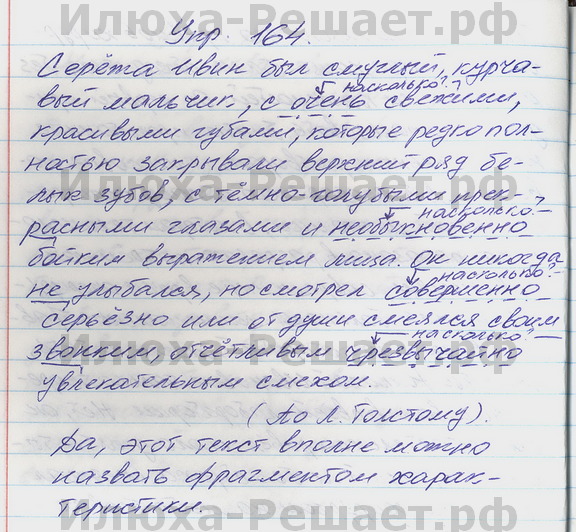 Илюха-Решает.рф
Упр. 164.
Серёжа Ивин был смуглый, курча-
насколько?
вый мальчик, с очень свежими,
красивыми губами, которые редко пол-
ностью закрывали верхний ряд бе-
Илюха-Решает.рф
лых зубов, с тёмно-голубыми прек-
насколько?
расными глазами и необыкновенно
бойким выражением лица. Он никогда
насколько?
не улыбался, но смотрел совершенно
серьёзно или от души смеялся своим
насколько?
звонким, отчётливым чрезвычайно
Илюха-Решает.рф
увлекательным смехом.
(По Л. Толстому).
Да, этот текст вполне можно
назвать фрагментом харак-
теристики.
Илюха-Решает.рф